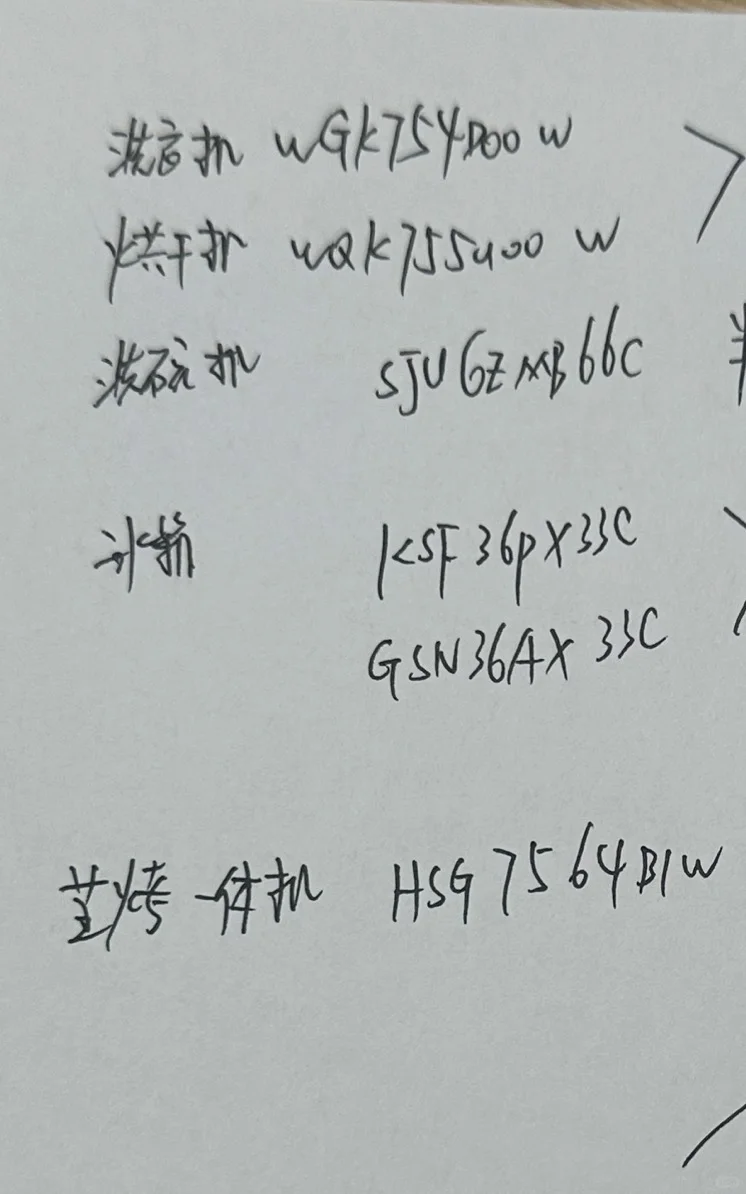 洗衣机 WGK754D00W
烘干机 WQK755U00W
洗碗机 SJU6ZMB66C
冰箱 KSF36PX33C
GSN36AX33C
蒸烤一体机 HSG7564B1W